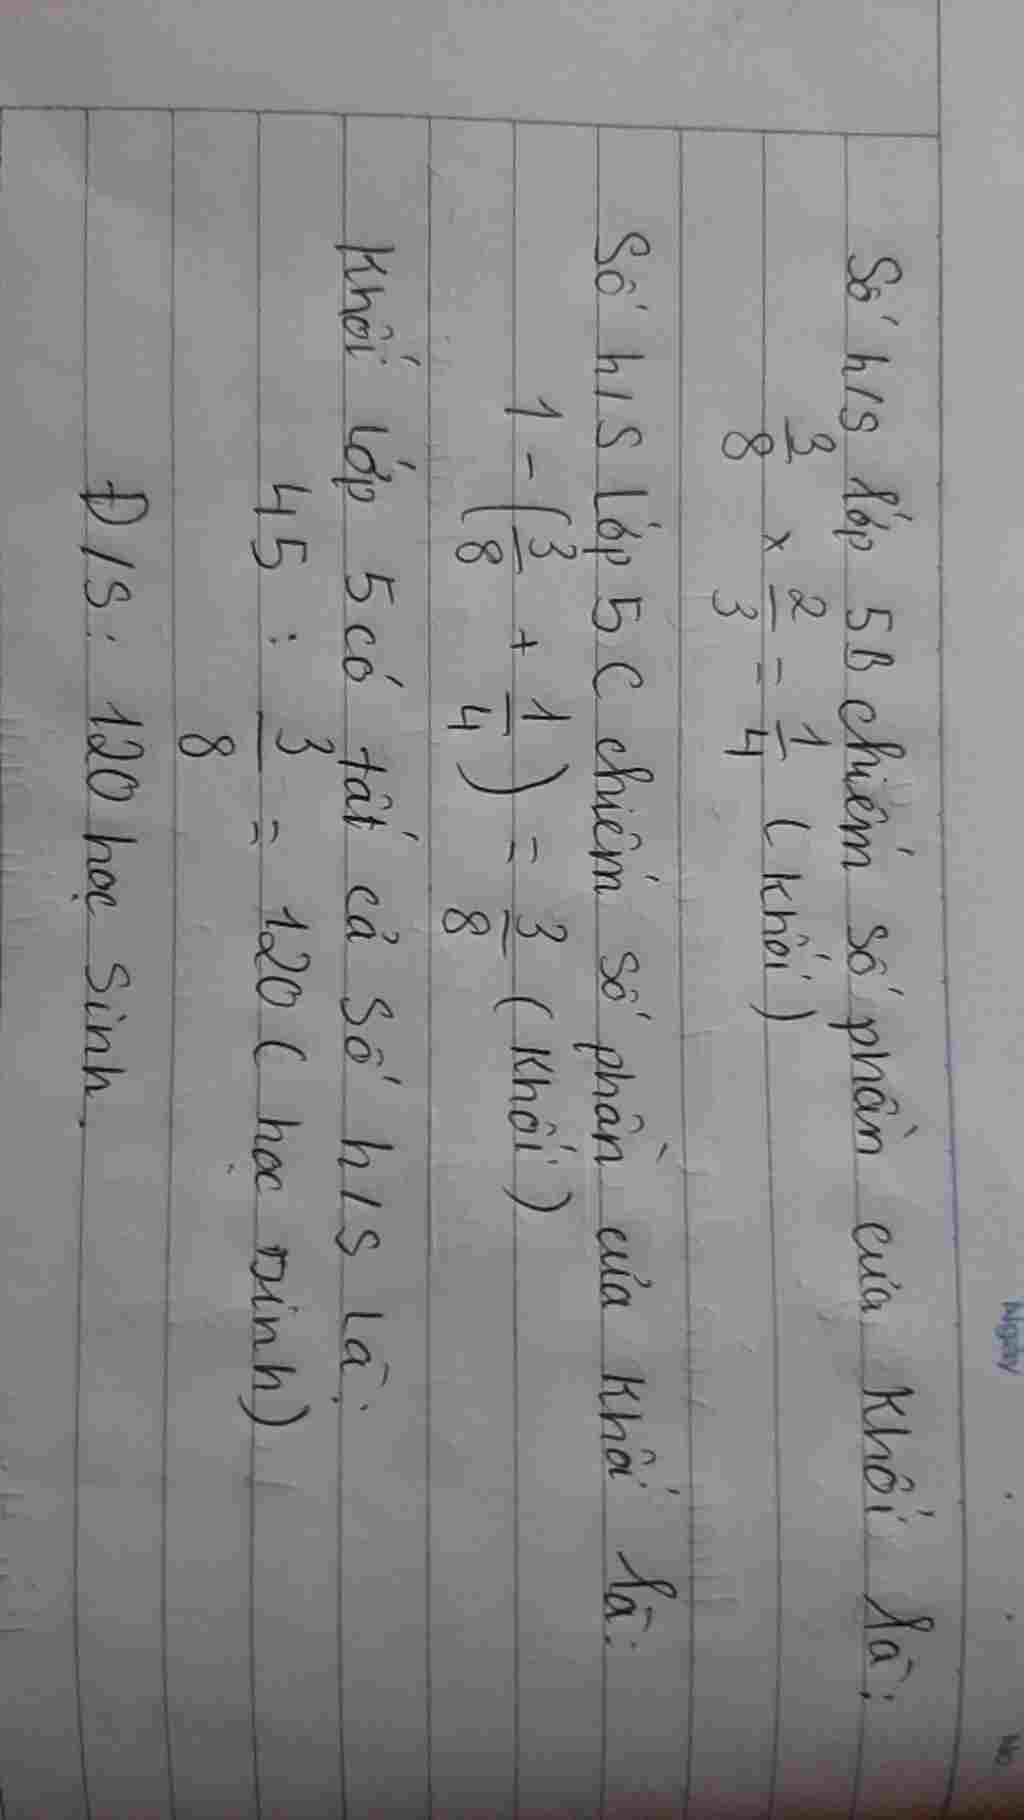 Ngày
No
Số h/s lớp 5B chiếm số phần của khối là:
3/8 x 2/3 = 1/4 (khối)
Số h/s lớp 5C chiếm số phần của khối là:
1 - (3/8 + 1/4) = 3/8 (khối)
Khối lớp 5 có tất cả số h/s là:
45 : 3/8 = 120 (học sinh)
Đ/S: 120 học sinh.